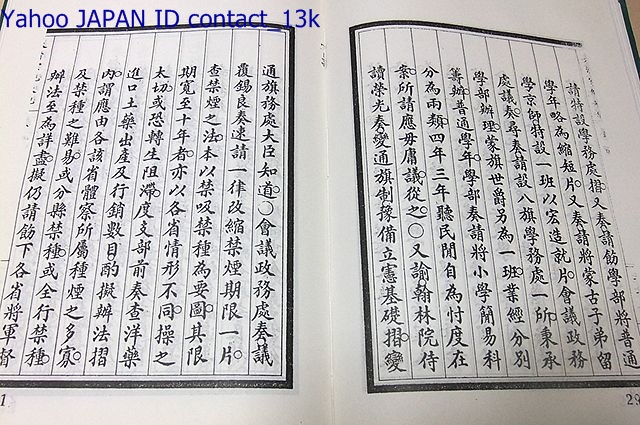 Yahoo JAPAN ID contact_13k
請特設學務處摺又奏請飭學部將普通
學年略為縮短片又奏請將蒙古子弟留
學京師特設一班以宏造就片會議政務
處議奏尋奏請設八旗學務處一所秉承
學部辦理蒙旗世爵另為一班業經分別
籌辦普通學年學部奏請將小學簡易科
分為兩類四年三年聽民間自為忖度在
案所請應毋庸議從之〇又諭翰林院侍
讀榮光奏變通旗制豫備立憲基礎摺變
通旗務處大臣知道〇會議政務處奏議
覆錫良奏速請一律改縮禁煙期限一片
查禁煙之法本以禁吸禁種為要圖其限
期寬至十年者亦以各省情形不同操之
太切或恐轉生阻滯度支部前奏查洋藥
進口土藥出產及行銷數目酌擬辦法摺
內謂應由各該省體察所屬種煙之多寡
及禁種之難易或分縣禁種或全行禁種
辦法至為詳盡擬仍請飭下各省將軍督
29
1